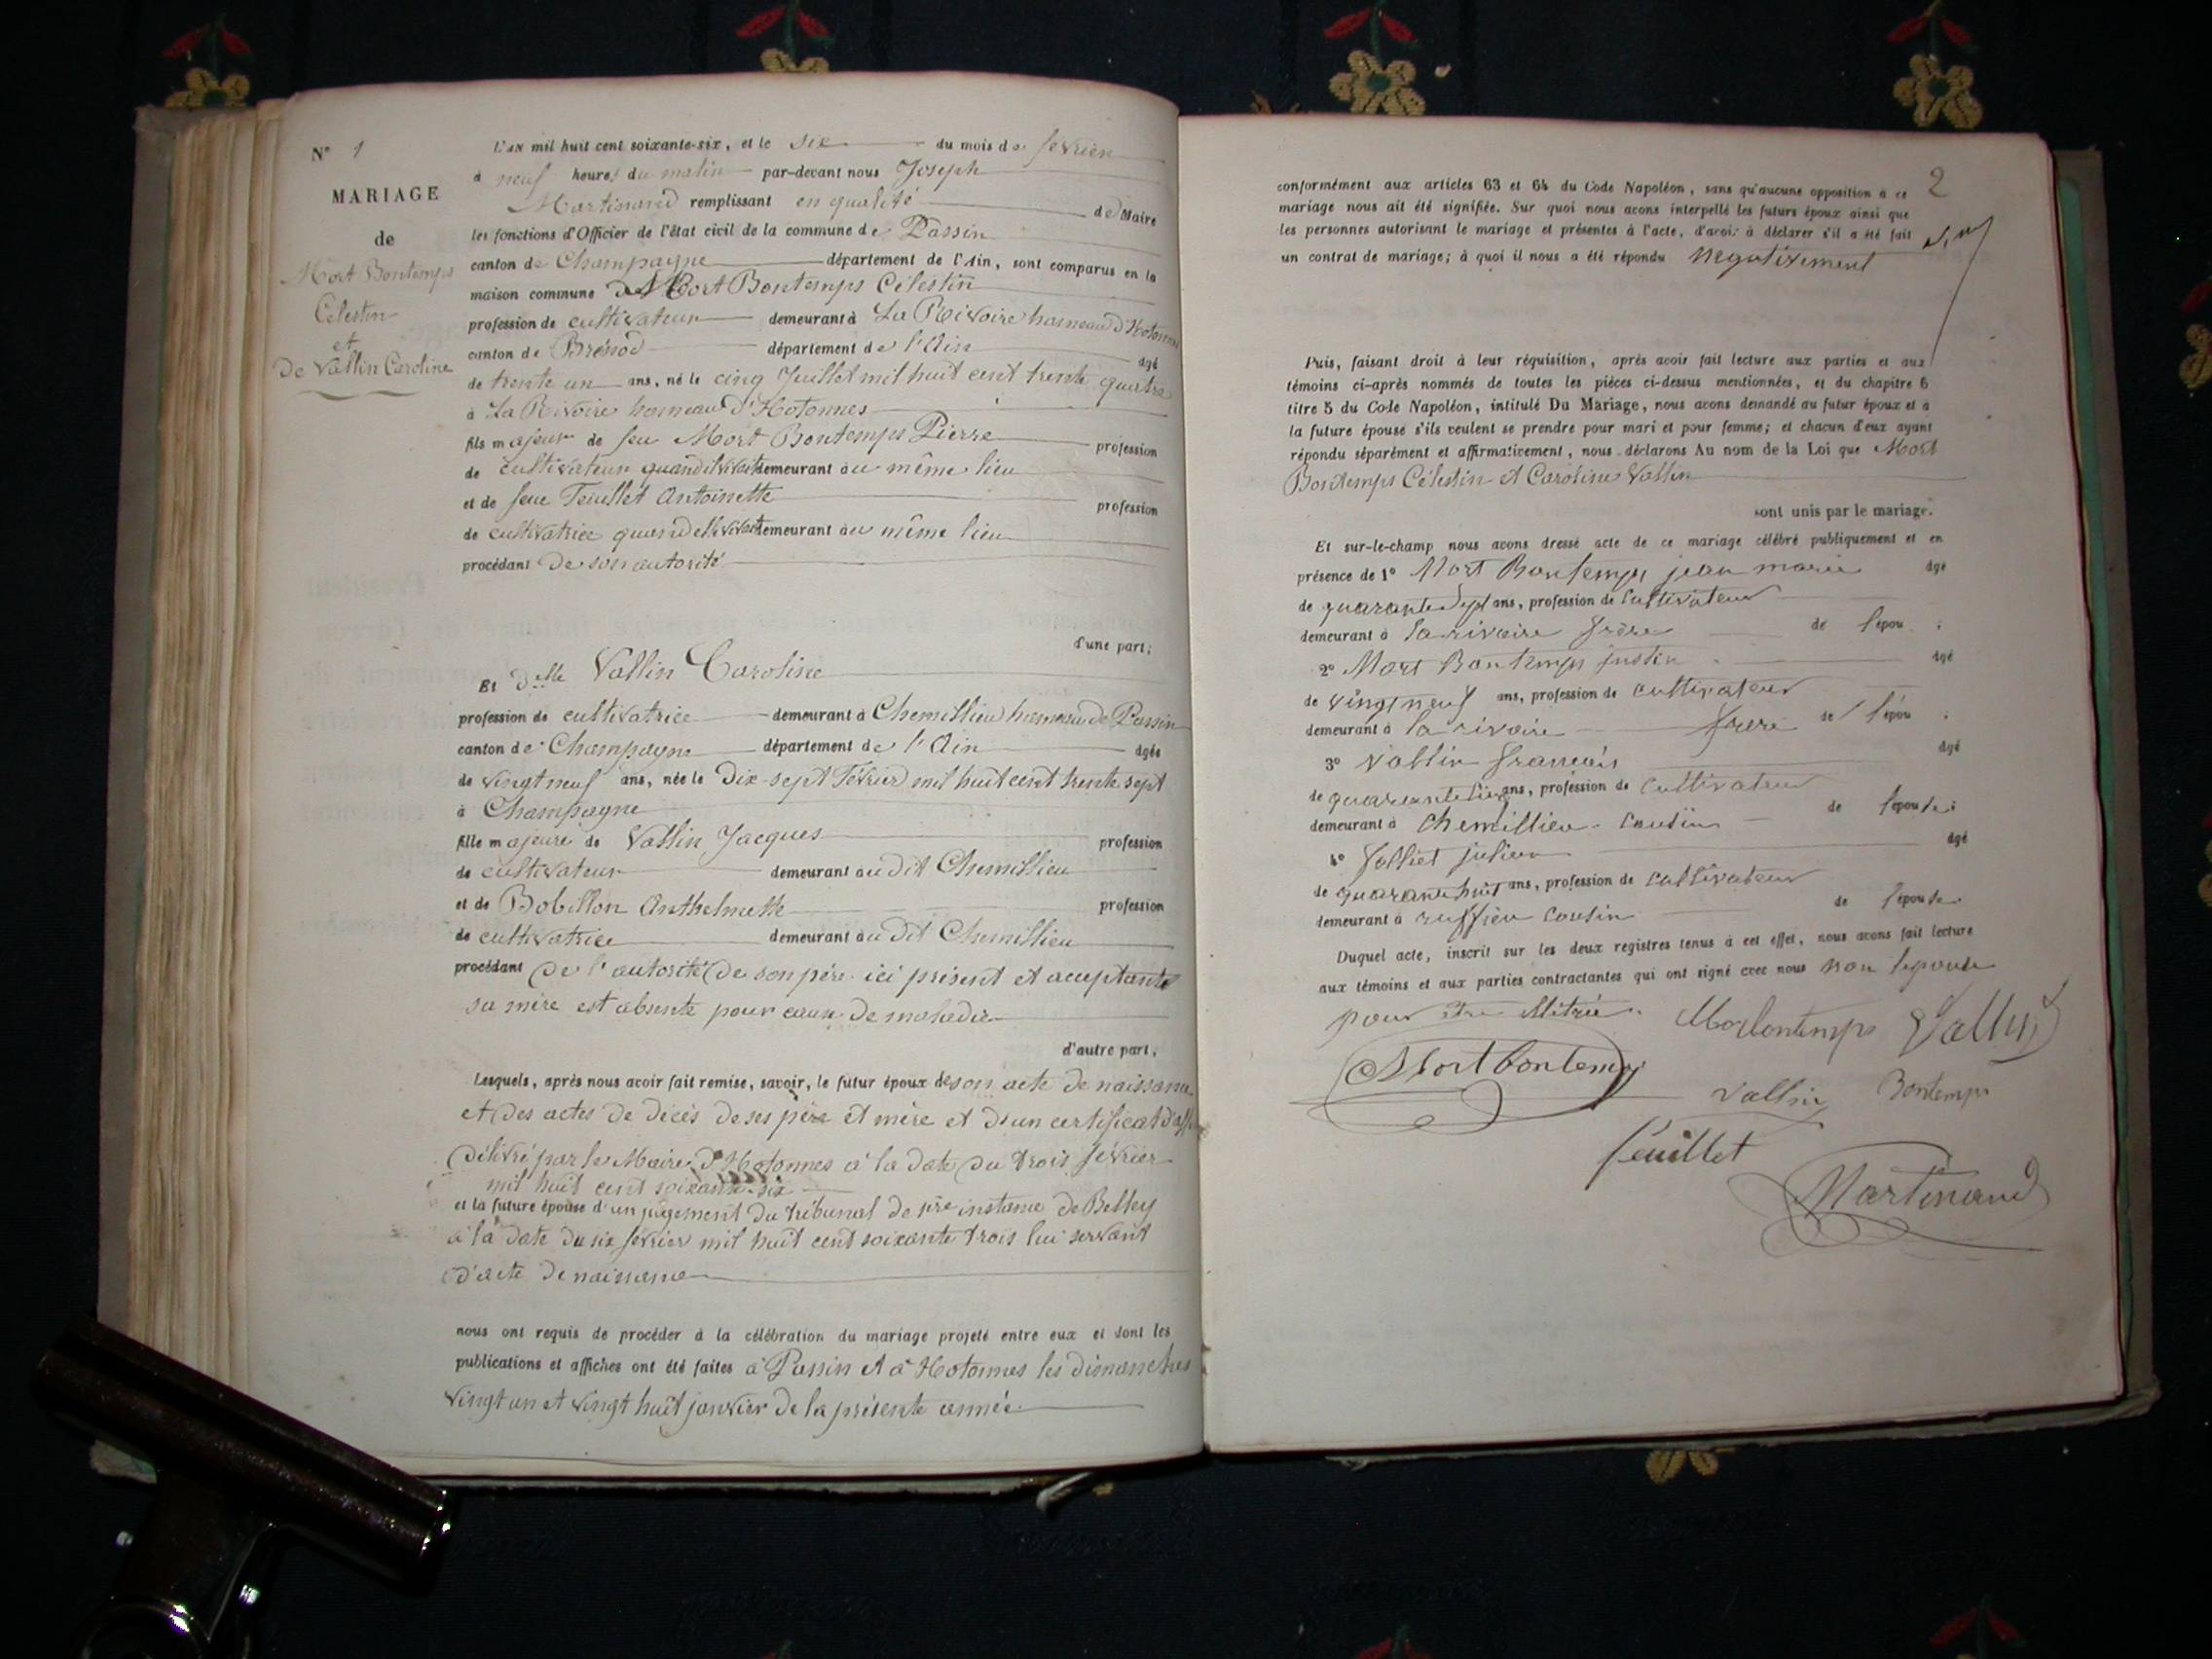 N° 1
MARIAGE
de
Mort Bontemps
Célestin
et
de Vallin Caroline
L'AN mil huit cent soixante-six, et le six du mois de février
à neuf heures du matin par-devant nous Joseph
Martinand remplissant en qualité de Maire
les fonctions d'Officier de l'état civil de la commune de Passin
canton de Champagne département de l'Ain, sont comparus en la
maison commune Mort Bontemps Célestin
profession de cultivateur demeurant à La Rivoire hameau d'Hotonnes
canton de Brénod département de l'Ain âgé
de trente un ans, né le cinq Juillet mil huit cent trente quatre
à La Rivoire hameau d'Hotonnes
fils majeur de feu Mort Bontemps Pierre profession
de cultivateur quand il vivait demeurant au même lieu
et de feue Feuillet Antoinette profession
de cultivatrice quand elle vivait demeurant au même lieu
procédant de son autorité
d'une part;
Et delle Vallin Caroline
profession de cultivatrice demeurant à Chemillieu hameau de Passin
canton de Champagne département de l'Ain âgée
de vingt neuf ans, née le dix-sept Février mil huit cent trente sept
à Champagne
fille majeure de Vallin Jacques profession
de cultivateur demeurant au dit Chemillieu
et de Bobillon Anthelmette profession
de cultivatrice demeurant au dit Chemillieu
procédant de l'autorité de son père ici présent et acceptante
sa mère est absente pour cause de maladie
d'autre part,
Lesquels, après nous avoir fait remise, savoir, le futur époux de son acte de naissance
et des actes de décès de ses père et mère et d'un certificat
délivré par le Maire d'Hotonnes à la date du trois février
mil huit cent soixante-six
et la future épouse d'un jugement du tribunal de pre instance de Belley
à la date du six février mil huit cent soixante trois lui servant
d'acte de naissance
nous ont requis de procéder à la célébration du mariage projeté entre eux et dont les
publications et affiches ont été faites à Passin et à Hotonnes les dimanches
vingt un et vingt huit janvier de la présente année
2
conformément aux articles 63 et 64 du Code Napoléon, sans qu'aucune opposition à ce
mariage nous ait été signifiée. Sur quoi nous avons interpellé les futurs époux ainsi que
les personnes autorisant le mariage et présentes à l'acte, d'avoir à déclarer s'il a été fait
un contrat de mariage; à quoi il nous a été répondu négativement
Puis, faisant droit à leur réquisition, après avoir fait lecture aux parties et aux
témoins ci-après nommés de toutes les pièces ci-dessus mentionnées, et du chapitre 6
titre 5 du Code Napoléon, intitulé Du Mariage, nous avons demandé au futur époux et à
la future épouse s'ils veulent se prendre pour mari et pour femme; et chacun d'eux ayant
répondu séparément et affirmativement, nous déclarons Au nom de la Loi que Mort
Bontemps Célestin et Caroline Vallin
sont unis par le mariage.
Et sur-le-champ nous avons dressé acte de ce mariage célébré publiquement et en
présence de 1° Mort Bontemps jean marie âgé
de quarante sept ans, profession de cultivateur
demeurant à la rivoire frère de l'épou ;
2° Mort Bontemps justin âgé
de vingt neuf ans, profession de cultivateur
demeurant à la rivoire frere de l'épou ;
3° Vallin francois âgé
de quarante six ans, profession de cultivateur
demeurant à chemillieu cousin de l'épouse;
4° Jolliet julien âgé
de quarante huit ans, profession de cultivateur
demeurant à ruffieu cousin de l'épouse.
Duquel acte, inscrit sur les deux registres tenus à cet effet, nous avons fait lecture
aux témoins et aux parties contractantes qui ont signé avec nous non l'epouse
pour
Morbontemps Vallin
Mort bontemps
Vallin Bontemps
feuillet
Martinand